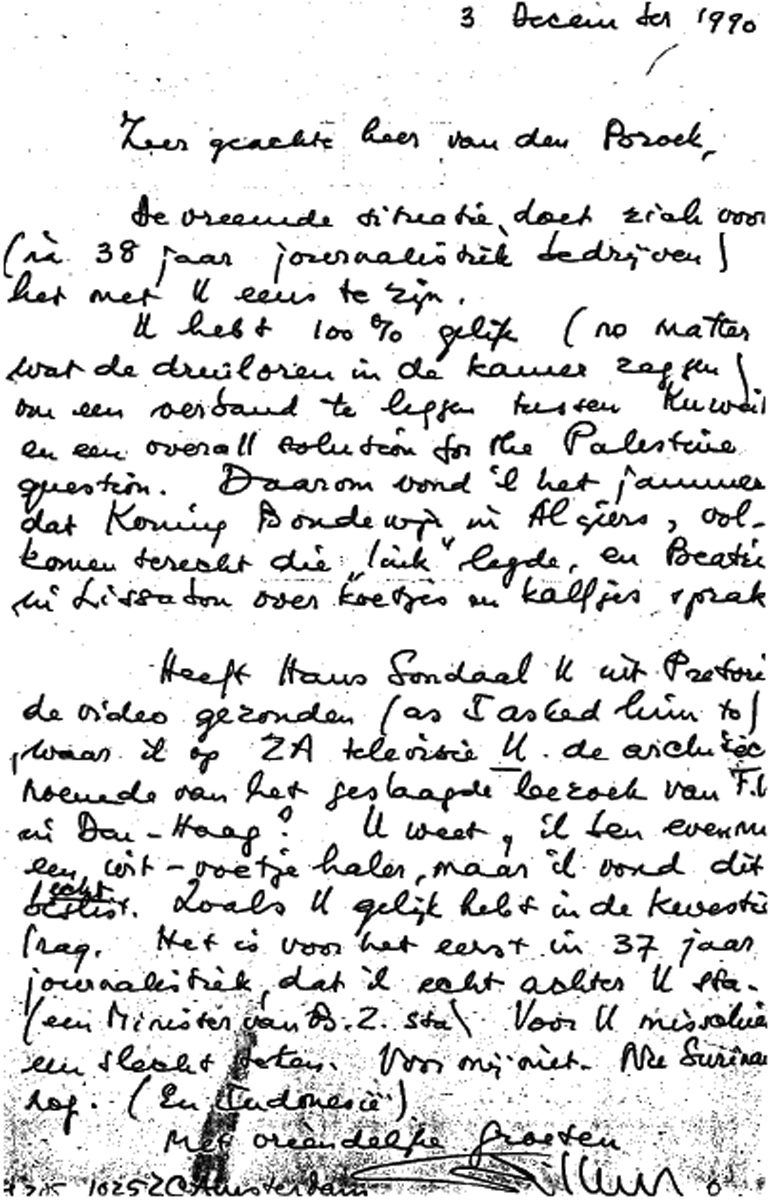 3 December 1990
Zeer geachte heer van den Broek,
De vreemde situatie doet zich voor
(in 38 jaar journalistiek bedrijven)
het met U eens te zijn.
U hebt 100% gelijk (no matter
wat de druiloren in de kamer zeggen)
om een verband te leggen tussen Kuwait
en een overall solution for the Palestine
question. Daarom vond ik het jammer
dat Koning Boudewijn in Algiers, vol-
komen terecht die "link" legde, en Beatri
in Lissabon over koetjes en kalfjes sprak
Heeft Hans Sondaal U uit Pretori
de video gezonden (as I asked him to)
waar ik op ZA televisie U de architec
noemde van het geslaagde bezoek van F.
in Den-Haag? U weet, ik ben evenm
een wit-voetje haler, maar ik vond dit
echt
beslist. Zoals U gelijk hebt in de kwestie
Iraq. Het is voor het eerst in 37 jaar
journalistiek, dat ik echt achter U sta.
(een Minister van B.Z. sta) Voor U misschie
een slecht teken. Voor mij niet. Nu Surina
nog. (En Indonesië)
Met vriendelijke groeten
1025 Amsterdam